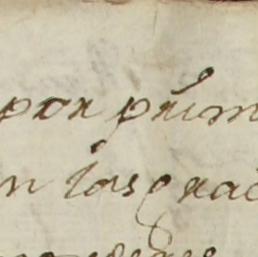 por prim
n las grac